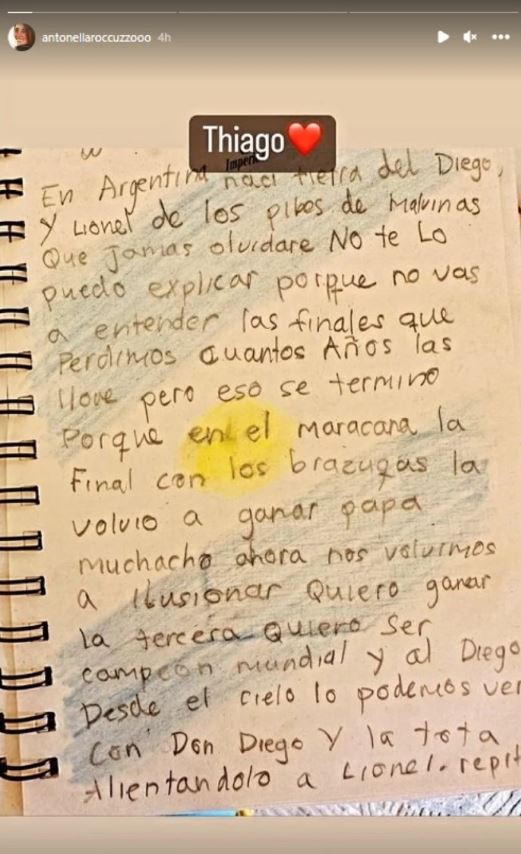 antonellaroccuzzooo 4h
Thiago
En Argentina naci tierra del Diego,
y Lionel de los pibes de Malvinas
Que jamas olvidare No te Lo
puedo explicar porque no vas
a entender las finales que
Perdimos Cuantos Años las
llore pero eso se termino
Porque en el maracana la
Final con los brazugas la
volvio a ganar papa
muchacho ahora nos volvimos
a ilusionar Quiero ganar
la tercera Quiero Ser
campeon mundial y al Diego
Desde el cielo lo podemos ver
Con Don Diego Y la tota
Alientandolo a Lionel. repit